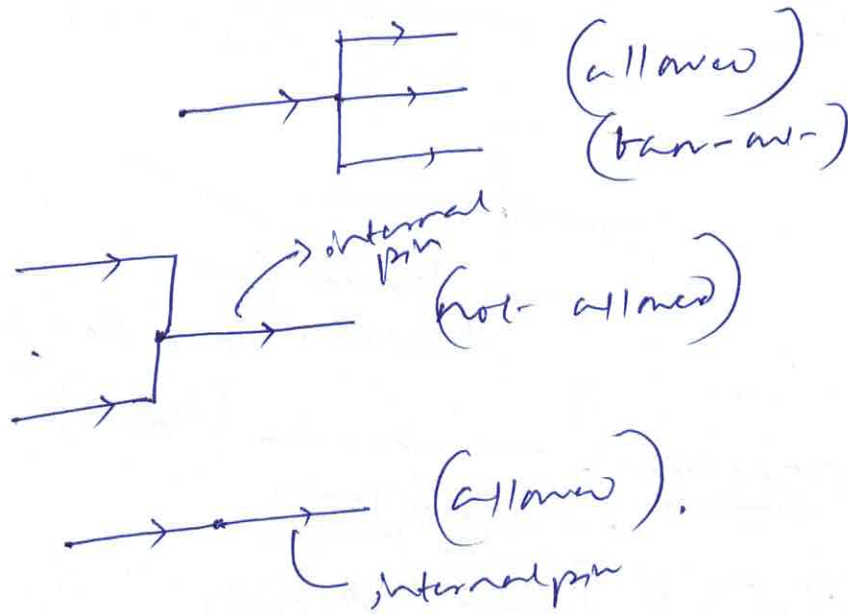 (allowed)
(fan-out)
internal
pin
(not allowed)
(allowed).
internal pin